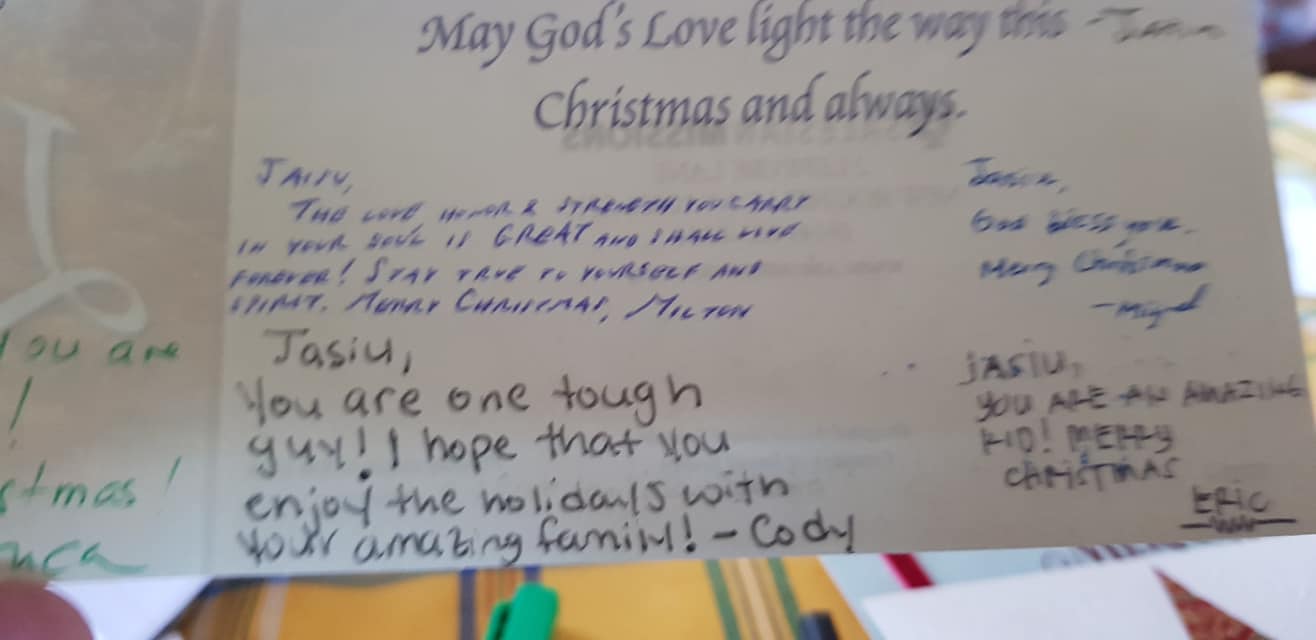 May God's Love light the way this
Christmas and always.
JASIU,
THE LOVE HONOR & STRENGTH YOU CARRY
IN YOUR SOUL IS GREAT AND SHALL LIVE
FOREVER! STAY TRUE TO YOURSELF AND
SPIRIT. MERRY CHRISTMAS, MILTON
Jasiu,
You are one tough
guy! I hope that you
enjoy the holidays with
your amazing family! - Cody
God bless you.
Merry Christmas
- Miguel
JASIU,
YOU ARE AN AMAZING
KID! MERRY
CHRISTMAS
ERIC
you are
!
stmas!